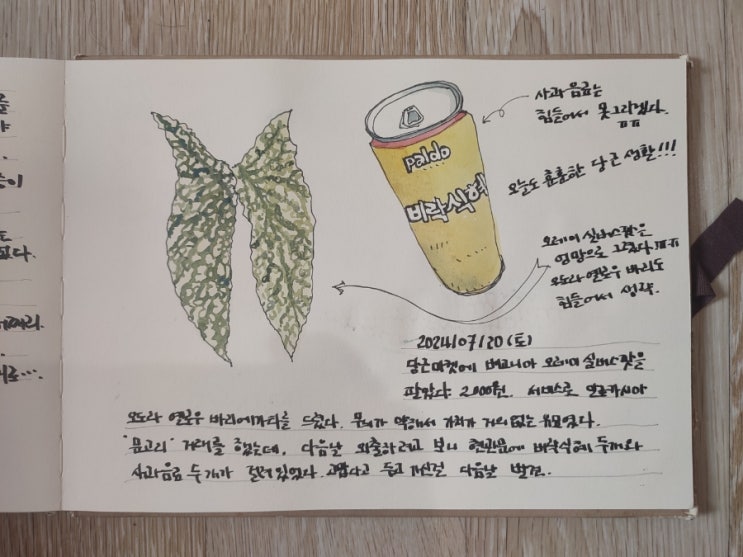 사과 음료는
힘들어서 못그리겠다.
ㅠㅠ
paldo
바락식혜
오늘도 훈훈한 당근 생활!!!
오레이 실버스팟은
엉망으로 그렸다. ㅠㅠ
오도라 옐로우 바리도
힘들어서 생략.
2024/07/20(토)
당근마켓에 베고니아 오레이 실버스팟을
팔았다 2,000원. 서비스로 알로카시아
오도라 옐로우 바리에가타를 드렸다. 무늬가 약해서 가치가 거의 없는 유묘였다.
"문고리" 거래를 했는데, 다음날 외출하려고 보니 현관문에 비락식혜 두개와
사과음료 두개가 걸려있었다. 고맙다고 두고 가신걸 다음날 발견.